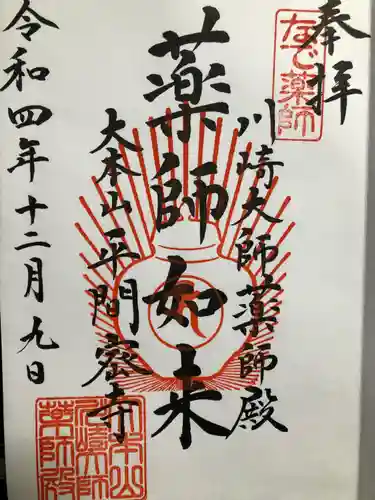 奉拝
なで薬師
川崎大師薬師殿
薬師如来
大本山平間密寺
令和四年十二月九日